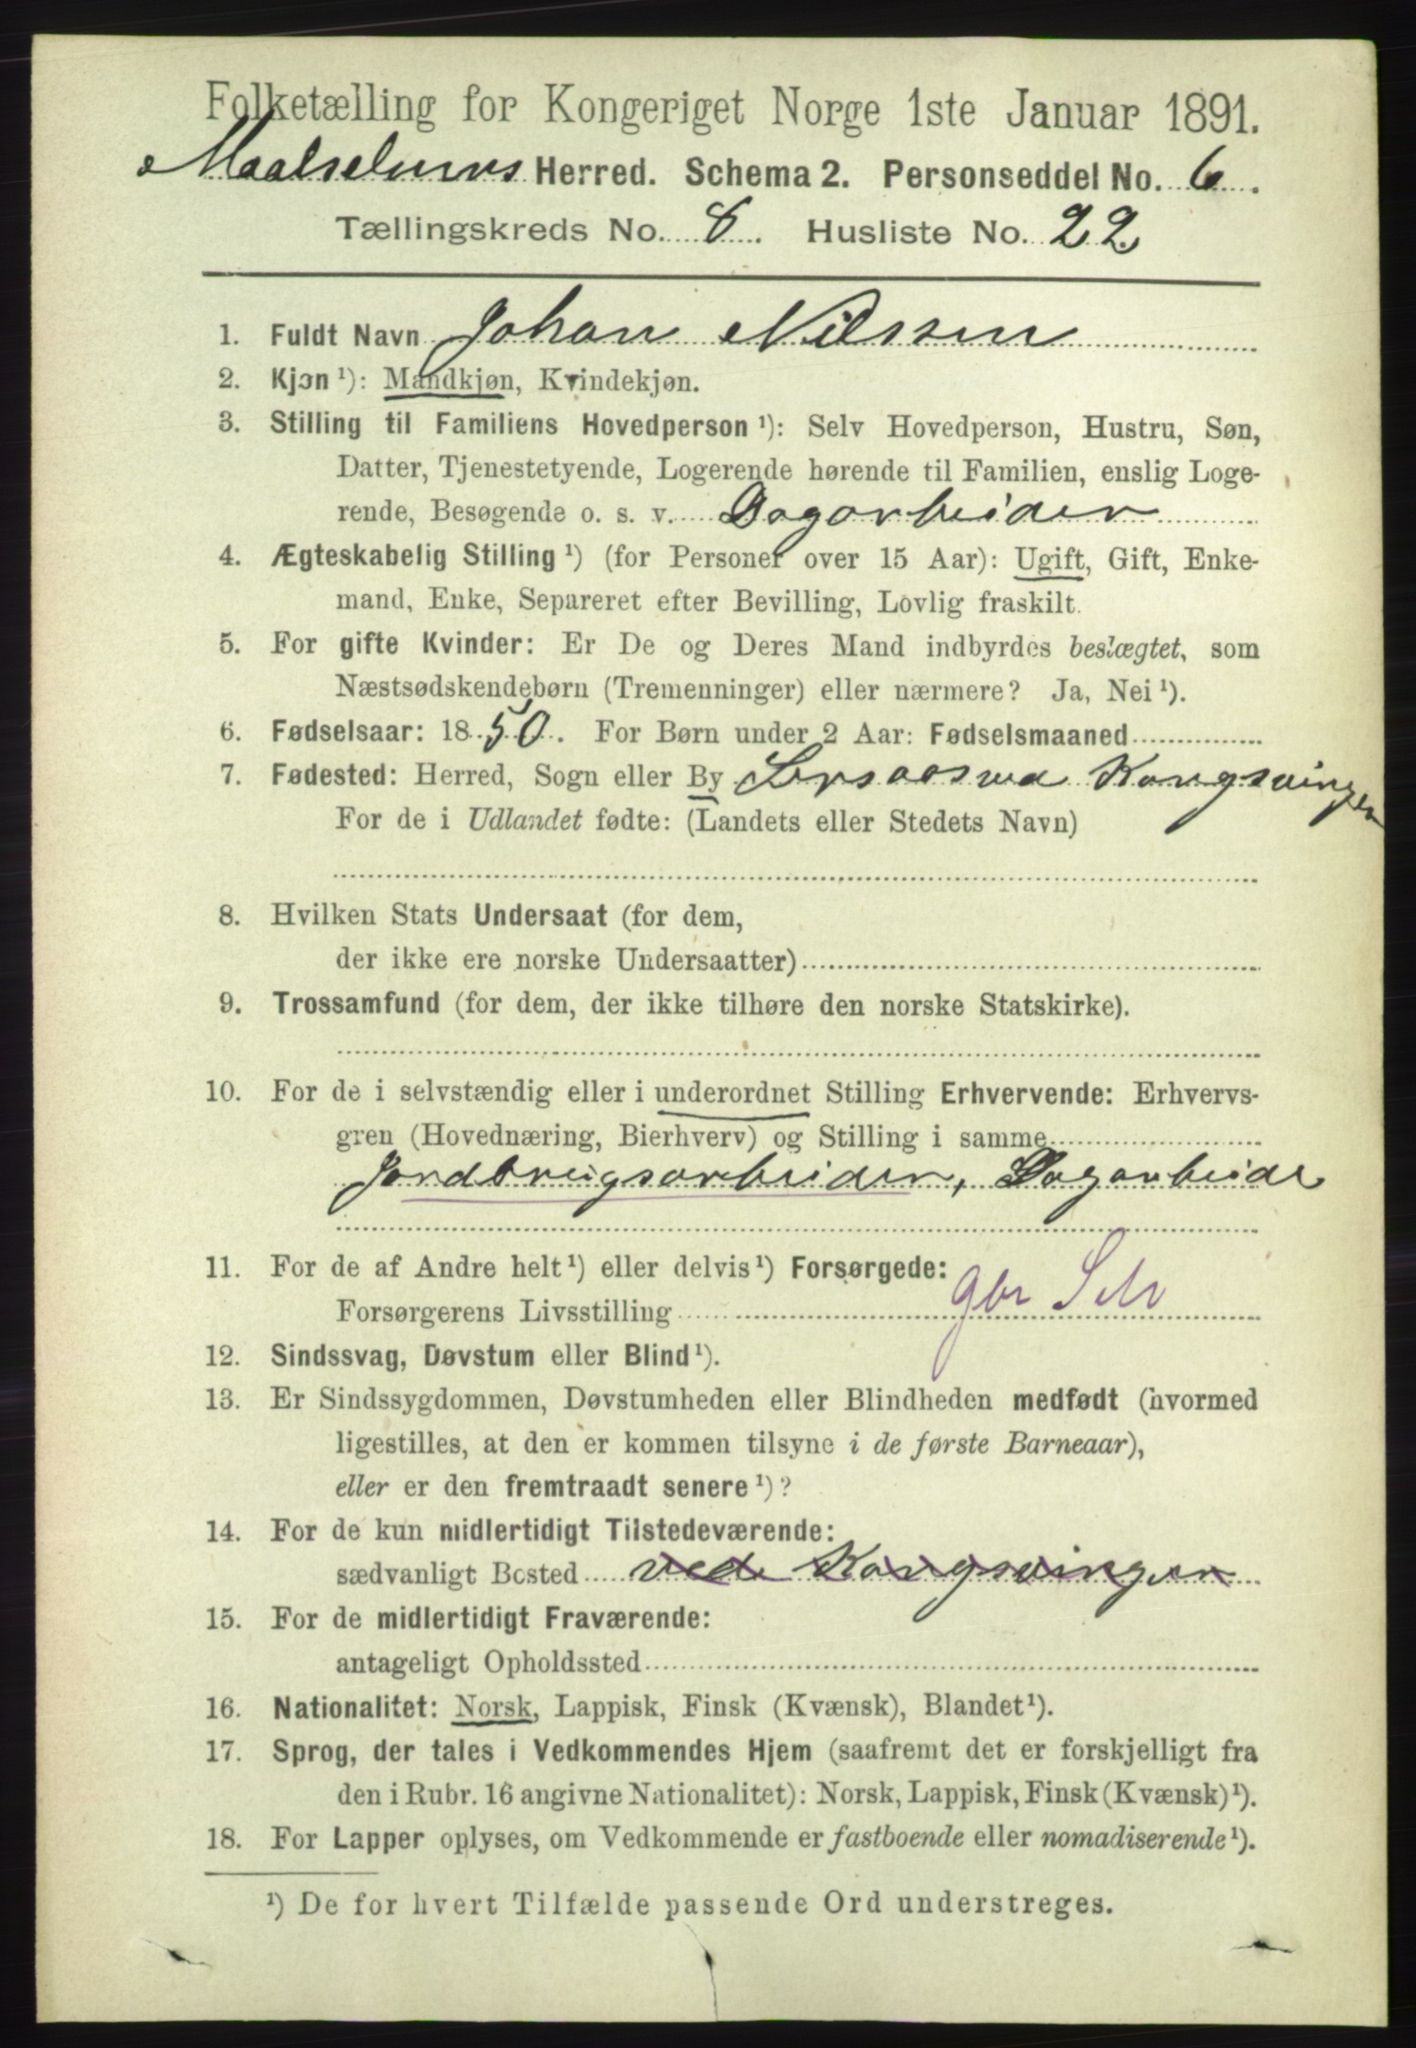 Folketælling for Kongeriget Norge 1ste Januar 1891.
Maalselvens Herred. Schema 2. Personseddel No. 6.
Tællingskreds No. 8. Husliste No. 22
1. Fuldt Navn Johan Nilssen
2. Kjøn ¹): Mandkjøn, Kvindekjøn.
3. Stilling til Familiens Hovedperson ¹): Selv Hovedperson, Hustru, Søn,
Datter, Tjenestetyende, Logerende hørende til Familien, enslig Loge-
rende, Besøgende o. s. v. Dagarbeider
4. Ægteskabelig Stilling ¹) (for Personer over 15 Aar): Ugift, Gift, Enke-
mand, Enke, Separeret efter Bevilling, Lovlig fraskilt.
5. For gifte Kvinder: Er De og Deres Mand indbyrdes beslægtet, som
Næstsødskendebørn (Tremenninger) eller nærmere? Ja, Nei ¹).
6. Fødselsaar: 1850. For Børn under 2 Aar: Fødselsmaaned
7. Fødested: Herred, Sogn eller By ved Kongsvinger
For de i Udlandet fødte: (Landets eller Stedets Navn)
8. Hvilken Stats Undersaat (for dem,
der ikke ere norske Undersaatter)
9. Trossamfund (for dem, der ikke tilhøre den norske Statskirke).
10. For de i selvstændig eller i underordnet Stilling Erhvervende: Erhvervs-
gren (Hovednæring, Bierhverv) og Stilling i samme
Jordbrugsarbeider, Dagarbeide
11. For de af Andre helt ¹) eller delvis ¹) Forsørgede:
Forsørgerens Livsstilling gbr Selv
12. Sindssvag, Døvstum eller Blind ¹).
13. Er Sindssygdommen, Døvstumheden eller Blindheden medfødt (hvormed
ligestilles, at den er kommen tilsyne i de første Barneaar),
eller er den fremtraadt senere ¹)?
14. For de kun midlertidigt Tilstedeværende:
sædvanligt Bosted ved Kongsvinger
15. For de midlertidigt Fraværende:
antageligt Opholdssted
16. Nationalitet: Norsk, Lappisk, Finsk (Kvænsk), Blandet ¹).
17. Sprog, der tales i Vedkommendes Hjem (saafremt det er forskjelligt fra
den i Rubr. 16 angivne Nationalitet): Norsk, Lappisk, Finsk (Kvænsk) ¹).
18. For Lapper oplyses, om Vedkommende er fastboende eller nomadiserende ¹).
¹) De for hvert Tilfælde passende Ord understreges.